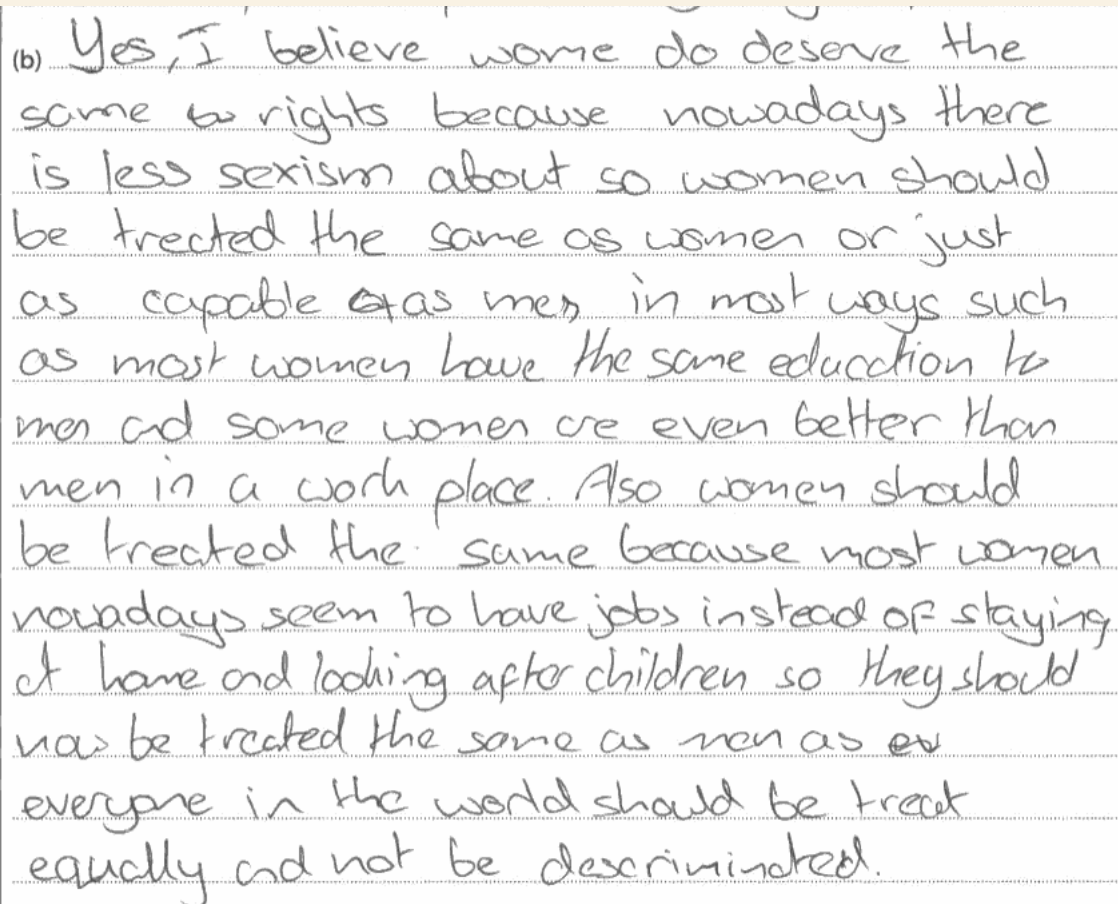 (b) Yes, I believe wome do deserve the
same rights because nowadays there
is less sexism about so women should
be treated the same as women or just
as capable as men in most ways such
as most women have the same education to
men and some women are even better than
men in a work place. Also women should
be treated the same because most women
nowadays seem to have jobs instead of staying
at home and looking after children so they should
now be treated the same as men as ev
everyone in the world should be treat
equally and not be descriminated.